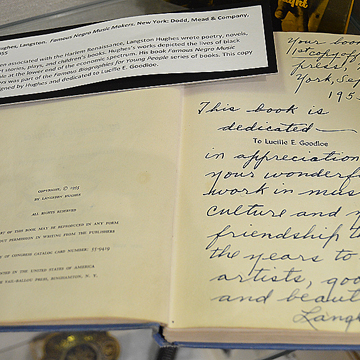 ughes, Langston. Famous Negro Music Makers. New York: Dodd, Mead & Company,
955
en associated with the Harlem Renaissance, Langston Hughes wrote poetry, novels,
stories, plays, and children's books. Hughes's works depicted the lives of black
le at the lower end of the economic spectrum. His book Famous Negro Music
was part of the Famous Biographies for Young People series of books. This copy
igned by Hughes and dedicated to Lucille E. Goodloe.
COPYRIGHT, © 1955
BY LANGSTON HUGHES
ALL RIGHTS RESERVED
OF THIS BOOK MAY BE REPRODUCED IN ANY FORM
PERMISSION IN WRITING FROM THE PUBLISHERS
OF CONGRESS CATALOG CARD NUMBER: 55-9419
IN THE UNITED STATES OF AMERICA
PRESS, BINGHAMTON, N. Y.
Your book
1st copy off
press,
York, Sep
195
This book is
dedicated—
To Lucille E. Goodloe
in appreciation
your wonderfu
work in mus
culture and
friendship
the years to
artists, goo
and beaut
Lang